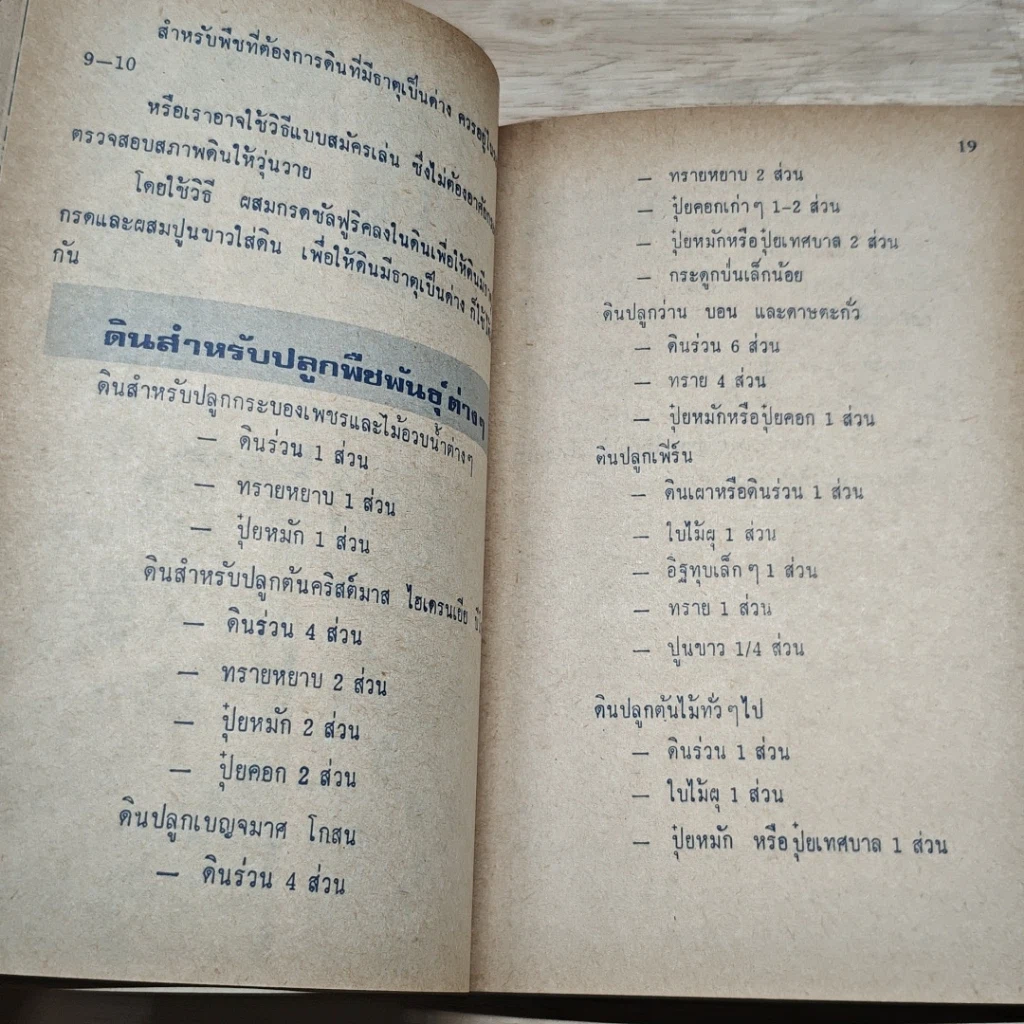 สำหรับพืชที่ต้องการดินที่มีธาตุเป็นด่าง ควรอยู่
9—10
หรือเราอาจใช้วิธีแบบสมัครเล่น ซึ่งไม่ต้องอาศัย
ตรวจสอบสภาพดินให้วุ่นวาย
โดยใช้วิธี ผสมกรดซัลฟูริคลงในดินเพื่อให้ดินมี
กรดและผสมปูนขาวใส่ดิน เพื่อให้ดินมีธาตุเป็นด่าง ก็ใช้
กัน
ดินสำหรับปลูกพืชพันธุ์ต่างๆ
ดินสำหรับปลูกกระบองเพชรและไม้อวบน้ำต่างๆ
— ดินร่วน 1 ส่วน
— ทรายหยาบ 1 ส่วน
— ปุ๋ยหมัก 1 ส่วน
ดินสำหรับปลูกต้นคริสต์มาส ไฮเดรนเยีย
— ดินร่วน 4 ส่วน
— ทรายหยาบ 2 ส่วน
— ปุ๋ยหมัก 2 ส่วน
— ปุ๋ยคอก 2 ส่วน
ดินปลูกเบญจมาศ โกสน
— ดินร่วน 4 ส่วน
19
— ทรายหยาบ 2 ส่วน
— ปุ๋ยคอกเก่าๆ 1-2 ส่วน
— ปุ๋ยหมักหรือปุ๋ยเทศบาล 2 ส่วน
— กระดูกป่นเล็กน้อย
ดินปลูกว่าน บอน และดาษตะกั่ว
— ดินร่วน 6 ส่วน
— ทราย 4 ส่วน
— ปุ๋ยหมักหรือปุ๋ยคอก 1 ส่วน
ดินปลูกเฟิร์น
— ดินเผาหรือดินร่วน 1 ส่วน
— ใบไม้ผุ 1 ส่วน
— อิฐทุบเล็กๆ 1 ส่วน
— ทราย 1 ส่วน
— ปูนขาว 1/4 ส่วน
ดินปลูกต้นไม้ทั่วๆไป
— ดินร่วน 1 ส่วน
— ใบไม้ผุ 1 ส่วน
— ปุ๋ยหมัก หรือปุ๋ยเทศบาล 1 ส่วน